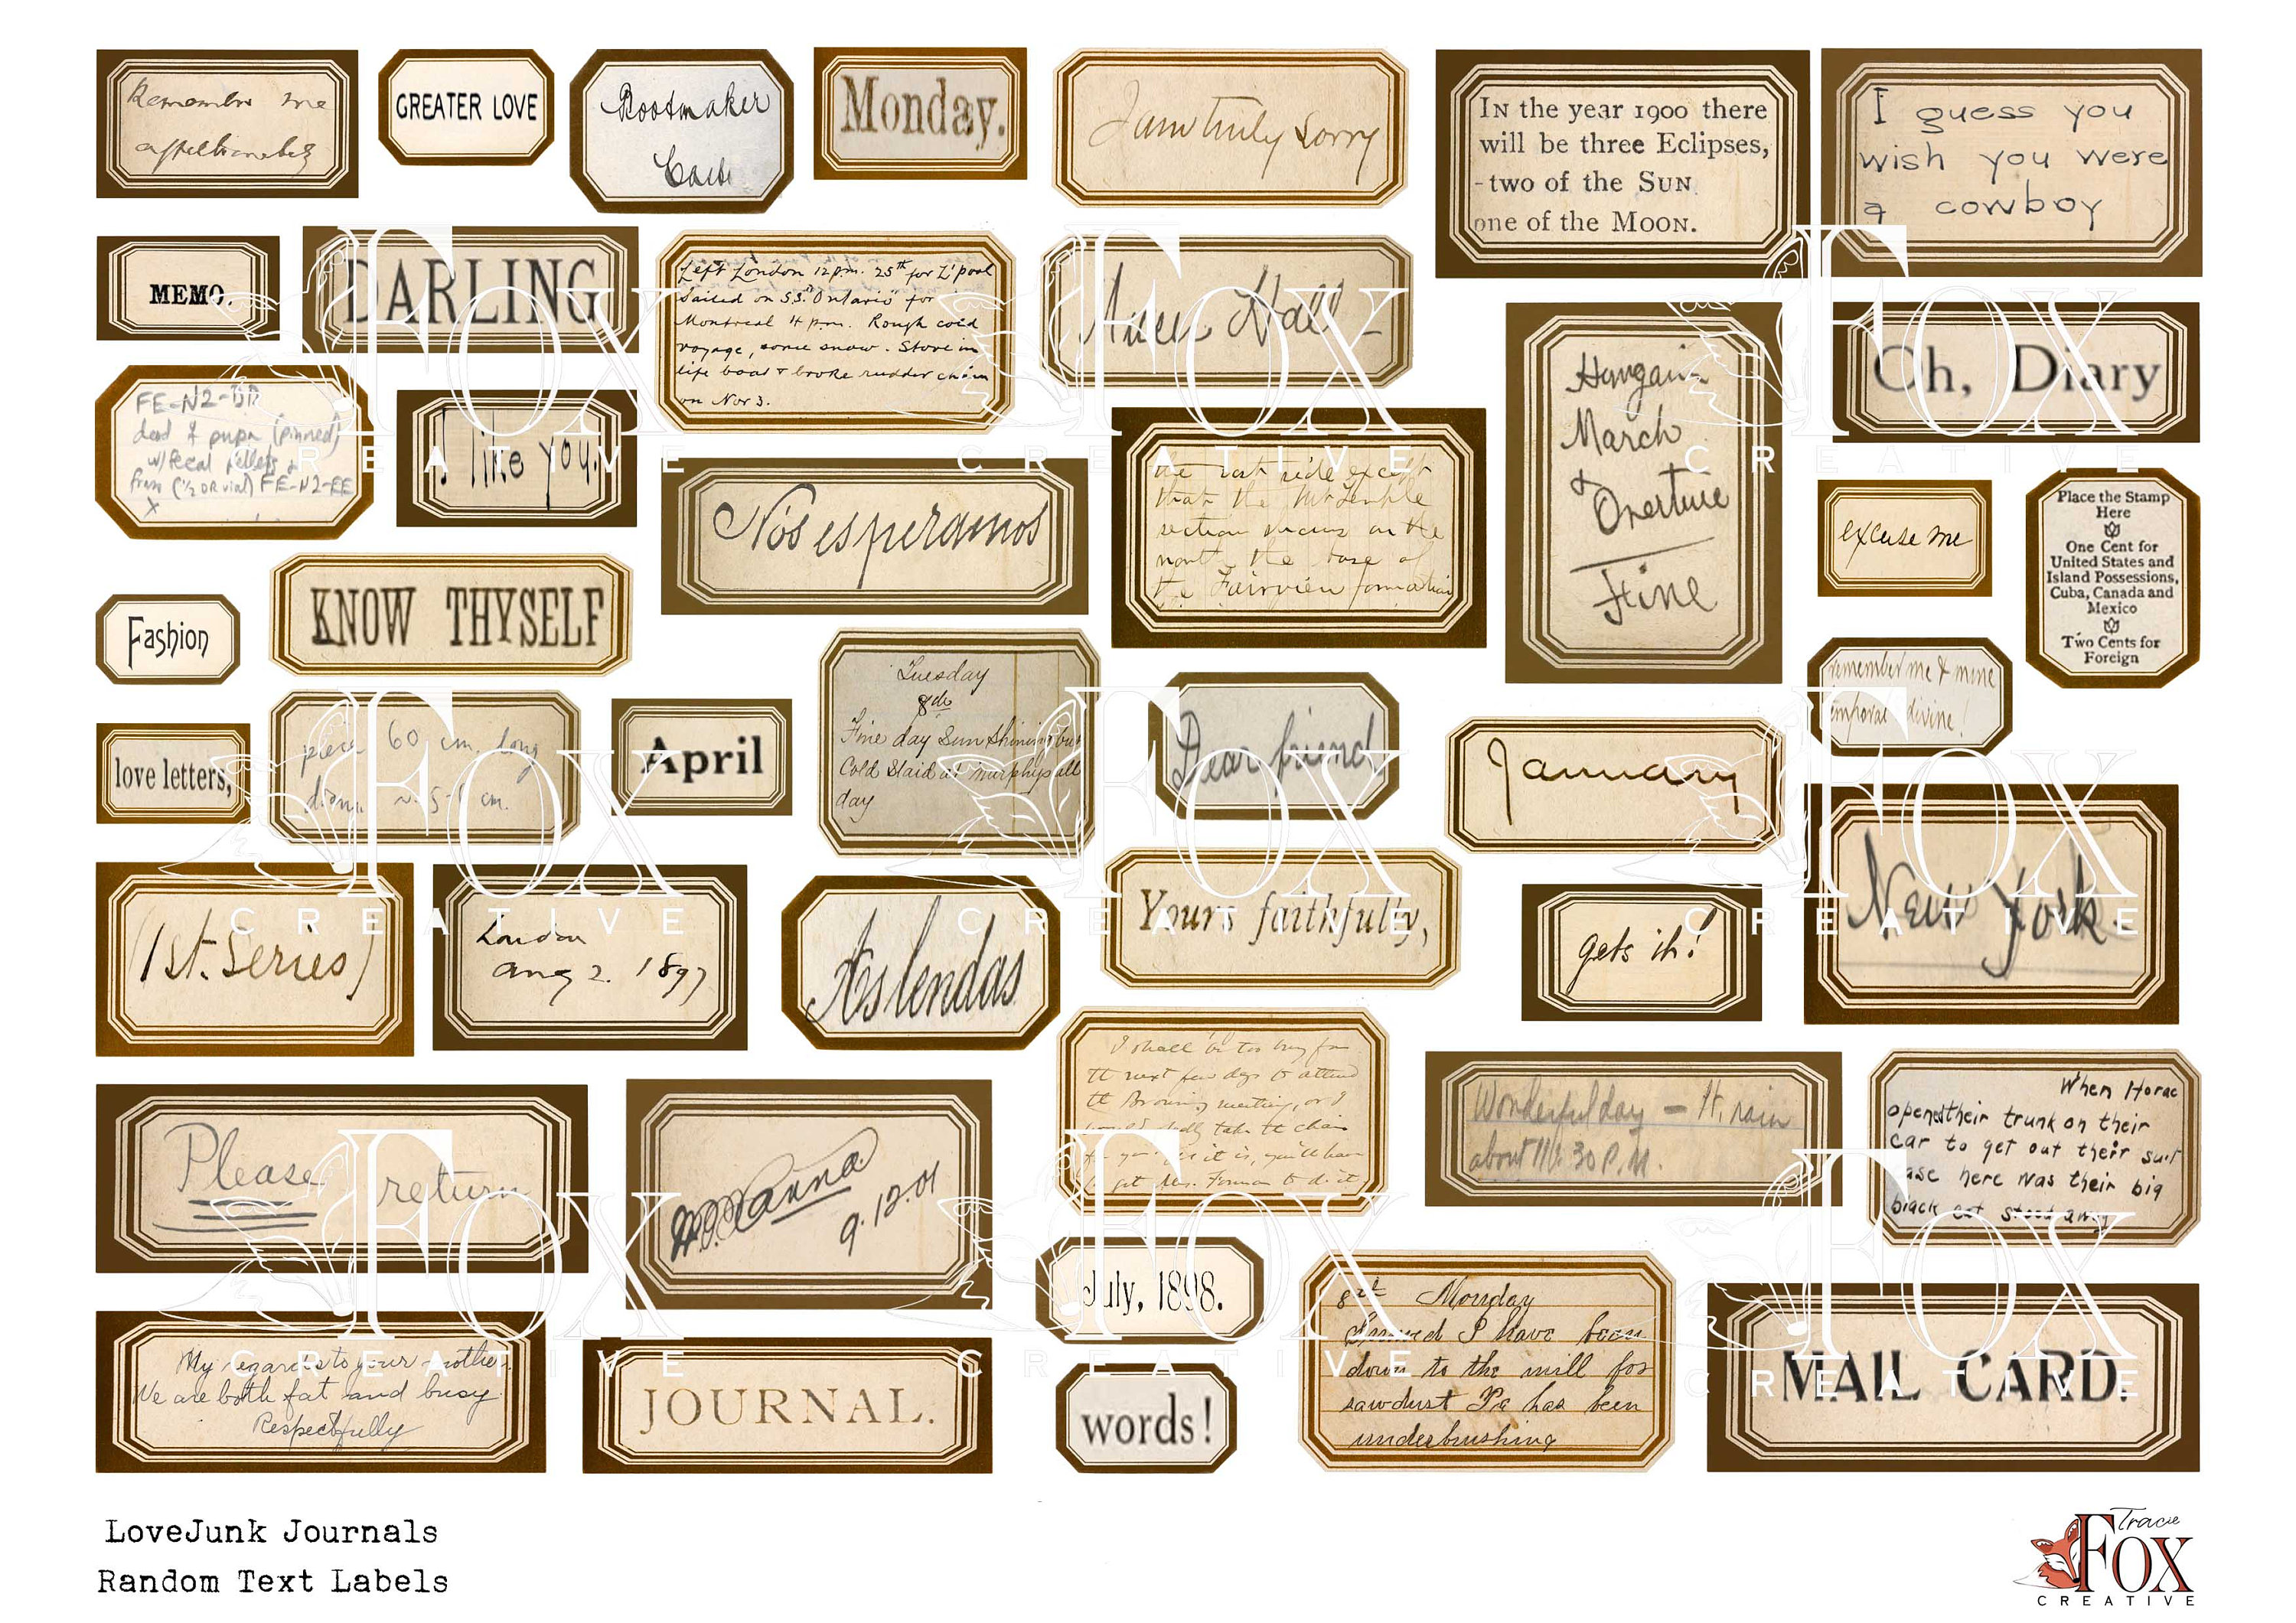 Remember me
affectionately
GREATER LOVE
Bootmaker
Monday.
I am truly sorry
IN the year 1900 there
will be three Eclipses,
-two of the SUN
one of the MOON.
I guess you
wish you were
a cowboy
MEMO.
DARLING
Left London 12 p.m. 25th for L'pool
Sailed on S.S. "Ontario" for
Montreal 4 p.m. Rough cold
voyage, some snow. Stove in
life boat & broke rudder chain
on Nov 3.
Hall -
Oh, Diary
FE-N2-
dead & pupa (pinned)
w/fecal pellets &
frass (1/2 DR vial) FE-N2-EE
X
I like you.
Nós esperamos
the east side except
that the Mt Temple
section on the
north the base of
the Fairview formation
March
& Overture
Fine
excuse me
Place the Stamp
Here
One Cent for
United States and
Island Possessions,
Cuba, Canada and
Mexico
Two Cents for
Foreign
Fashion
KNOW THYSELF
Tuesday
8th
Fine day Sun shining but
Cold Staid at Murphys all
day
Dear friend
remember me & mine
divine!
love letters,
piece 60 cm. long
diam ~ 5- cm.
April
January
New York
(1st. Series)
London
Aug 2. 1897
As lendas
Yours faithfully,
gets it!
I shall be too busy for
the next few days to attend
the Browning meeting, or I
would gladly take the chair
for you. As it is, you'll have
to get Mrs. to do it
Please return
9.12.01
Wonderful day - lt. rain
about 11.30 P.M.
When Horac
opened their trunk on their
car to get out their suit
case here was their big
black cat
July, 1898.
8th Monday
I have been
down to the mill for
sawdust Pa has been
underbrushing
MAIL CARD.
My regards to your mother.
We are both fat and busy
Respectfully
JOURNAL.
words!
FOX
CREATIVE
LoveJunk Journals
Random Text Labels
Tracie
FOX
CREATIVE